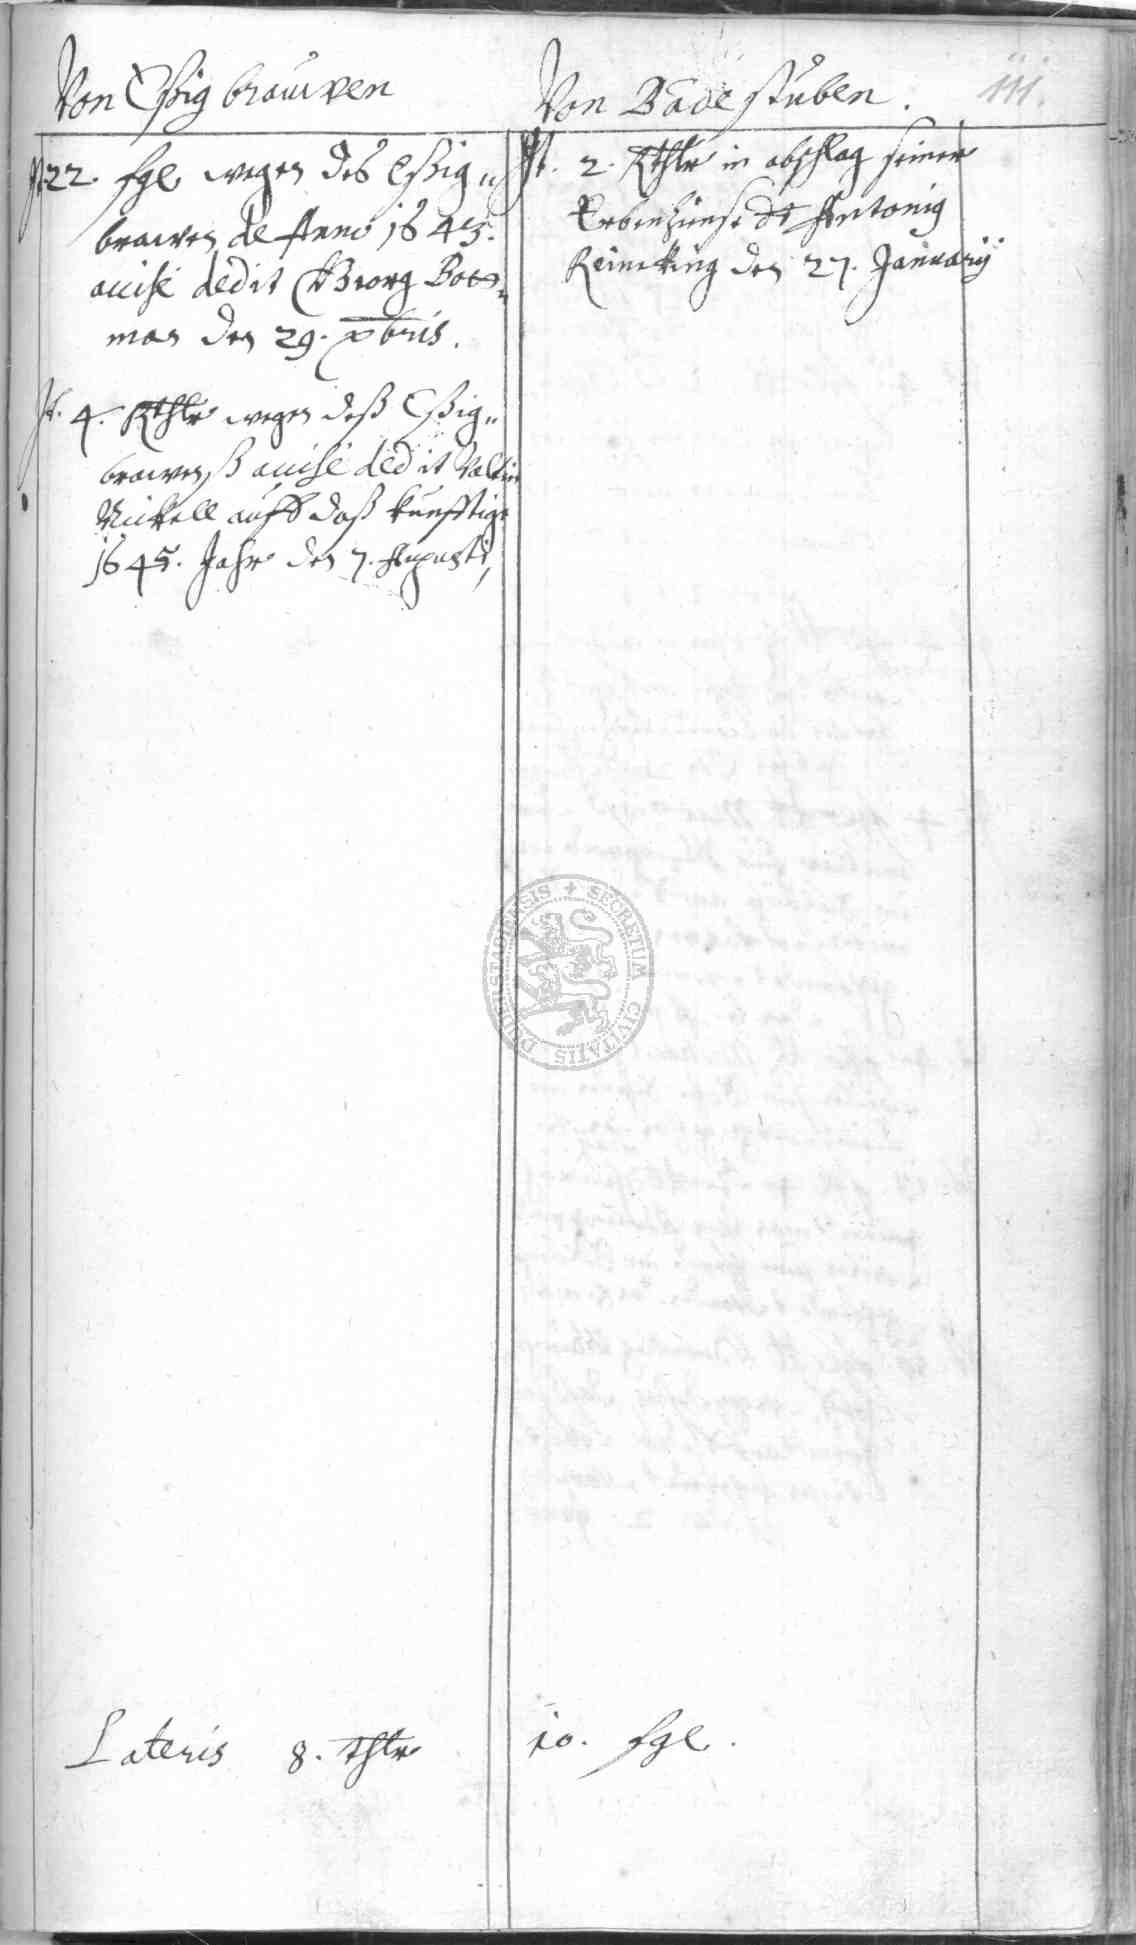 Von Essig brauwen
It. 22. fgl wegen des Essig„
brawen de Anno 1645.
accise dedit Georg Bot„
man den 29. xbris.
It. 4. Rthlr wegen deß Essig„
brawenß accise dedit Valtin
Nickell auff daß kunfftige
1645. Jahr den 7. Augusti
Von Badestuben.
111.
It. 2. Rthlr in abschlag seiner
Erbenzinse dt Antonig
Reinecking den 27. Januarij
SECRETUM CIVITATIS DUDERSTADIENSIS
Lateris 8. thlr 10. fgl.